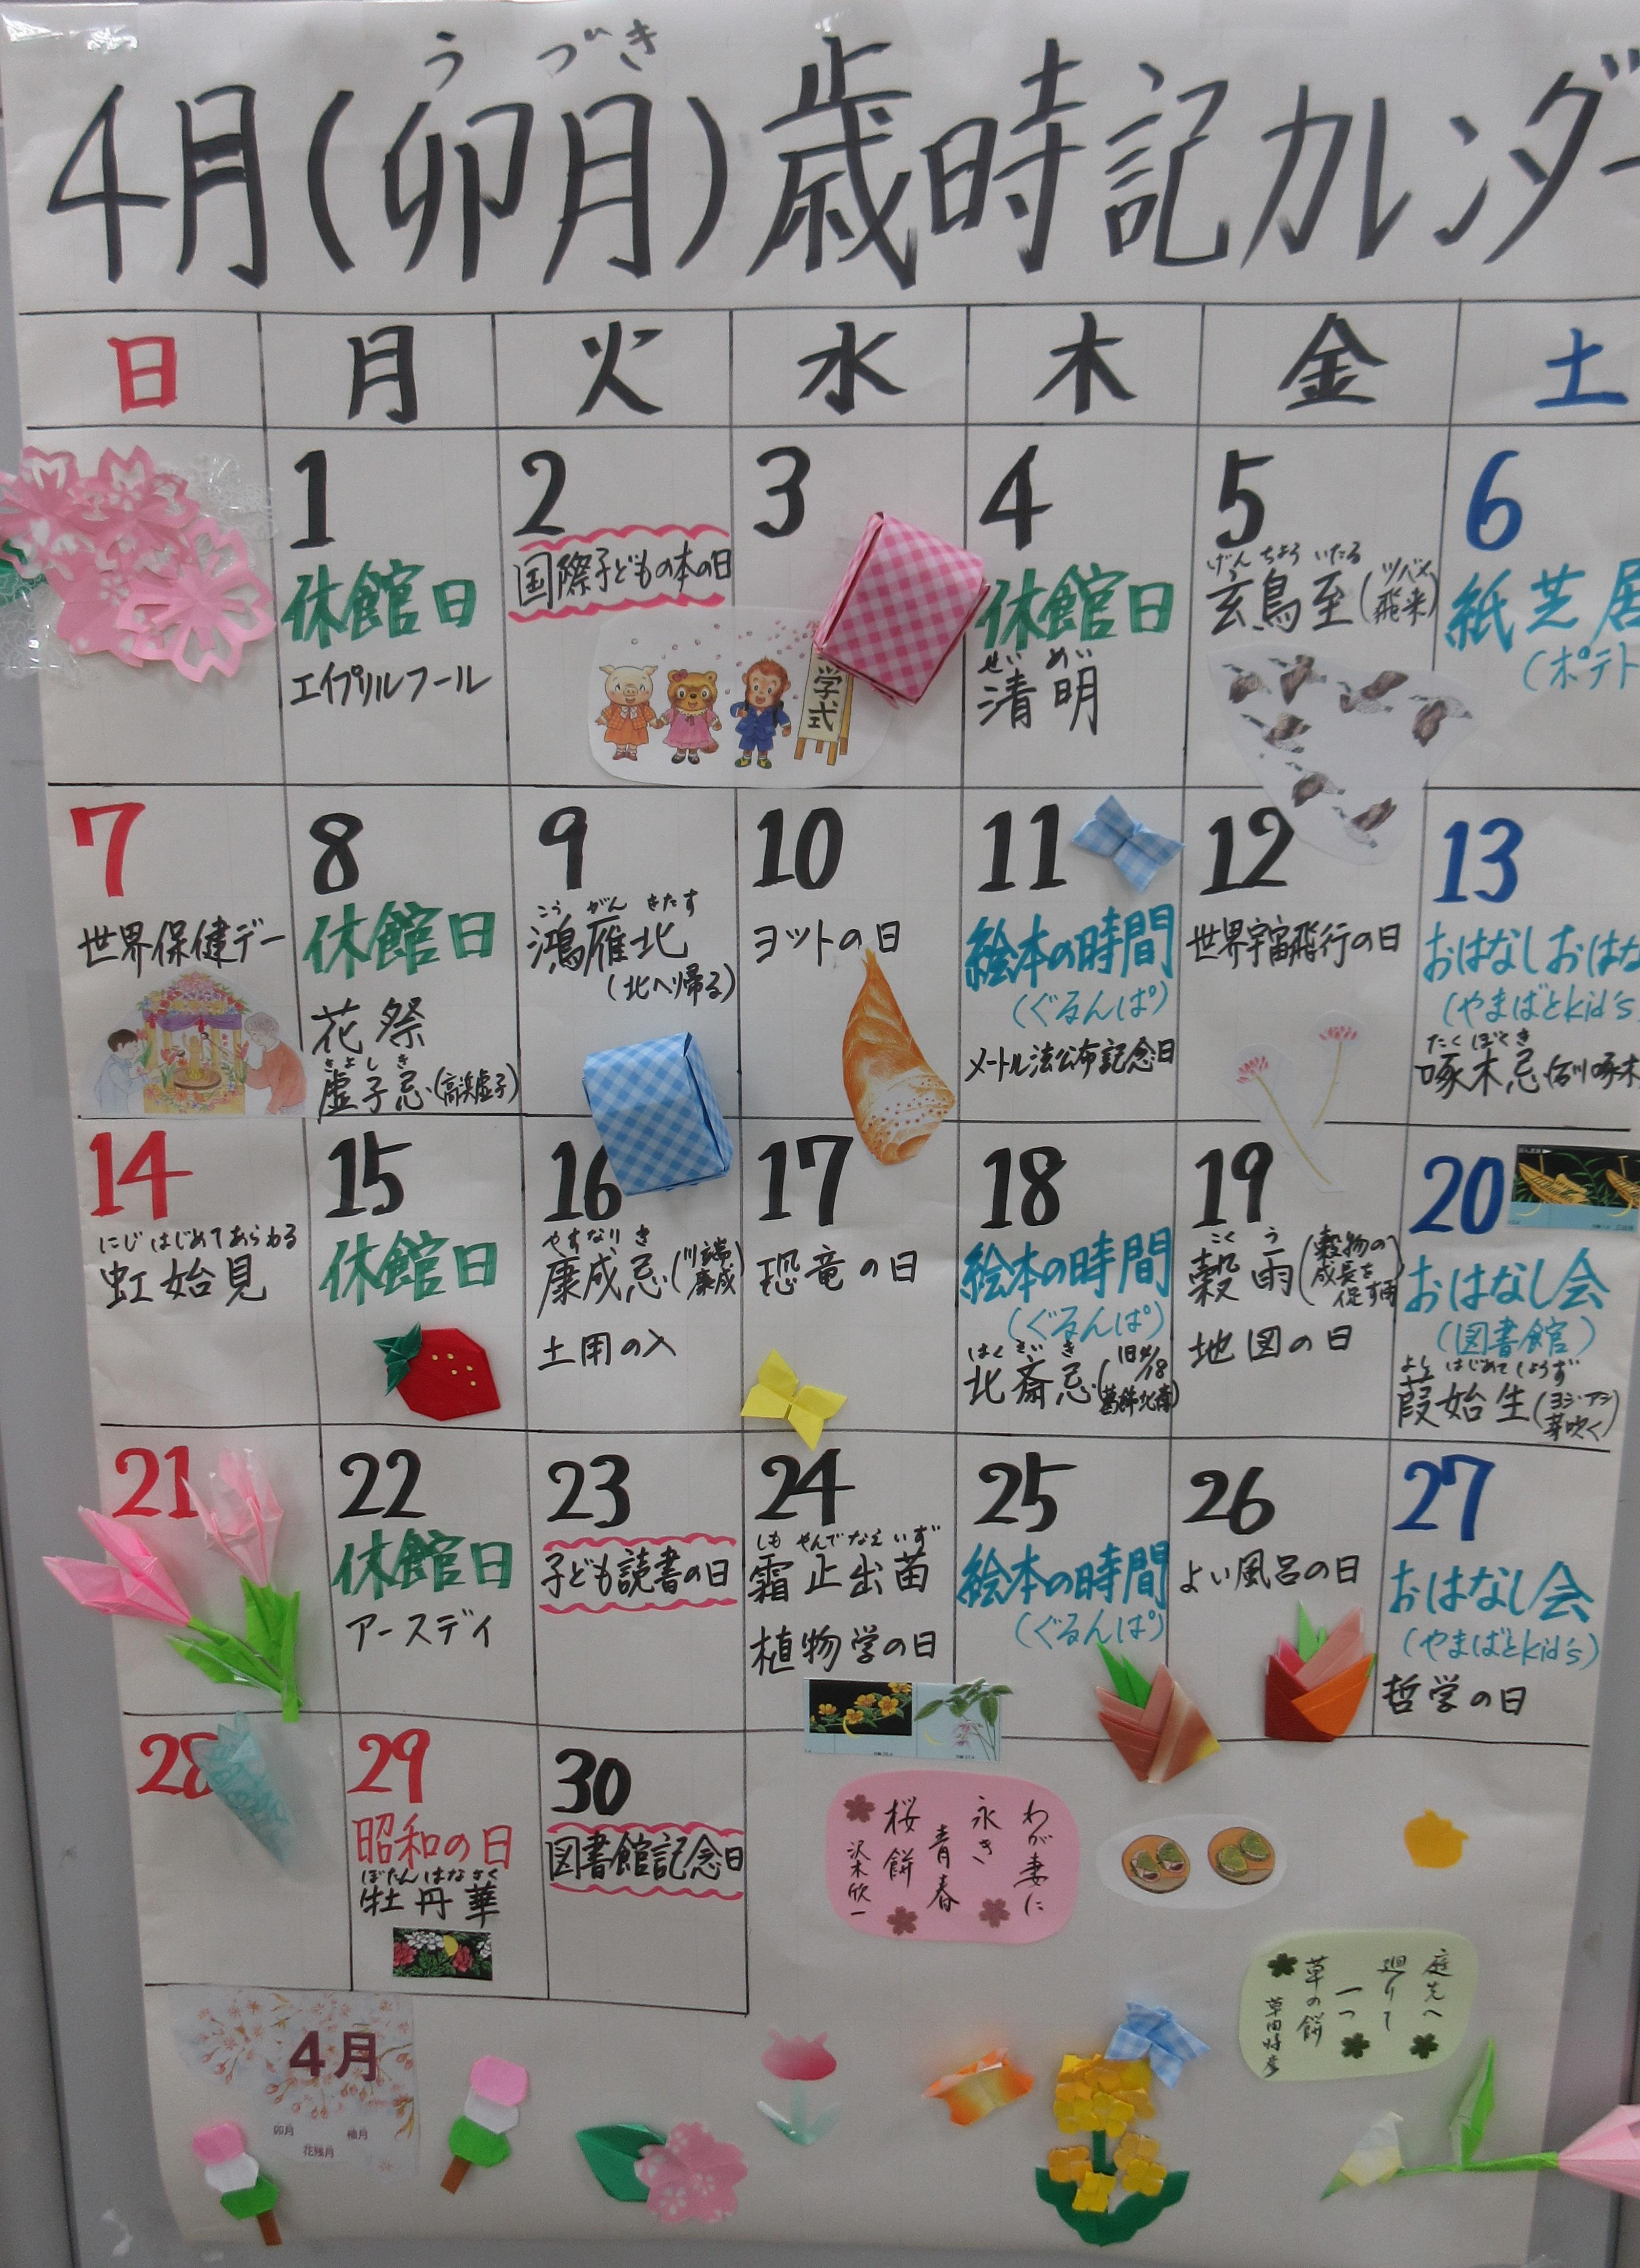 うづき
4月(卯月)歳時記カレンダー
日 月 火 水 木 金 土
1
休館日
エイプリルフール
2
国際子どもの本の日
学式
3
4
休館日
せいめい
清明
5
げんちょういたる
玄鳥至(ツバメ飛来)
6
紙芝居
(ポテト
7
世界保健デー
8
休館日
花祭
きよしき
虚子忌(高浜虚子)
9
こうがんきたす
鴻雁北
(北へ帰る)
10
ヨットの日
11
絵本の時間
(ぐるんぱ)
メートル法公布記念日
12
世界宇宙飛行の日
13
おはなしおはな
(やまばとkid's
たくぼくき
啄木忌(石川啄木
14
にじはじめてあらわる
虹始見
15
休館日
16
やすなりき
康成忌(川端康成)
土用の入
17
恐竜の日
18
絵本の時間
(ぐるんぱ)
ほくさいき
北斎忌(旧4/18葛飾北斎)
19
こくう
穀雨(穀物の成長を促す雨)
地図の日
20
おはなし会
(図書館)
よしはじめてしょうず
葭始生(ヨシ・アシ芽吹く)
21
22
休館日
アースデイ
23
子ども読書の日
24
しもやんでなえいず
霜止出苗
植物学の日
25
絵本の時間
(ぐるんぱ)
26
よい風呂の日
27
おはなし会
(やまばとkid's)
哲学の日
28
29
昭和の日
ぼたんはなさく
牡丹華
30
図書館記念日
わが妻に
永き
青春
桜餅
沢木欣一
庭先へ
廻りて
一つ
草の餅
4月
卯月
花残月